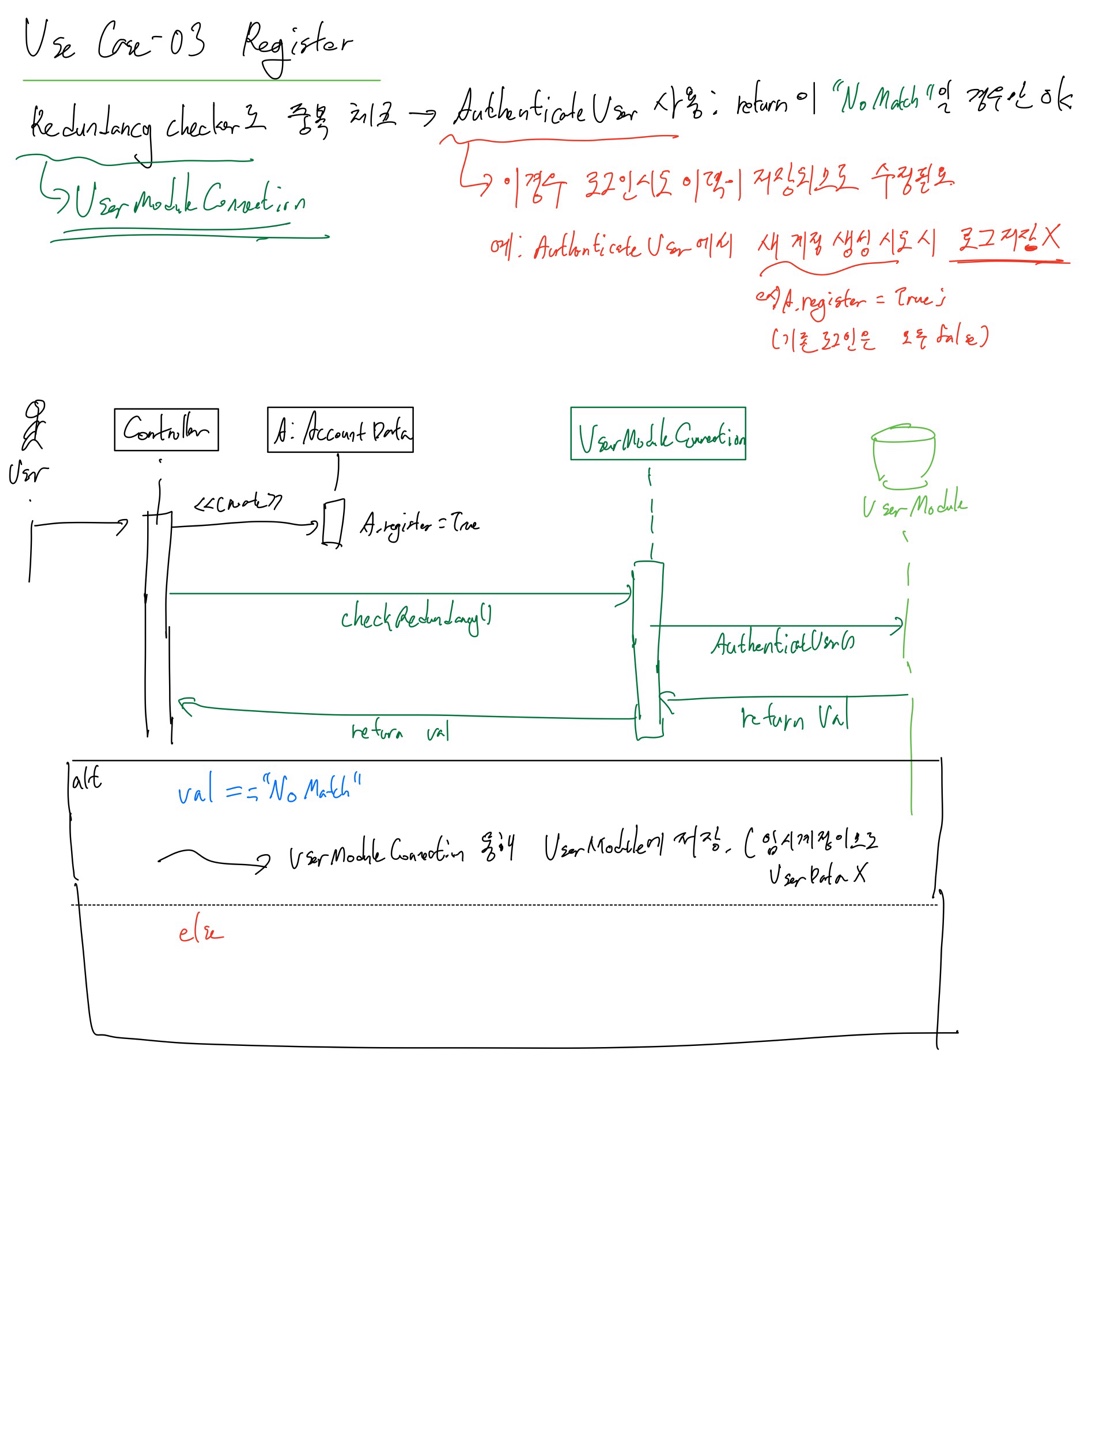 Use Case-03 Register
Redundancy checker로 중복 체크 → Authenticate User 사용: return이 "No Match"일 경우만 ok
↳ UserModuleConnection
↳ 이경우 로그인시도 이력이 저장되므로 수정필요
예: Authenticate User에서 새 계정 생성 시도시 로그저장 X
ex) A.register = True;
(기존 로그인은 모두 false)
User
Controller
A: Account Data
UserModuleConnection
UserModule
<<Create>>
A.register = True
checkRedundancy()
AuthenticatUser()
return Val
return val
alt
val == "No Match"
→ UserModuleConnection 통해 UserModule에 저장. (임시계정이므로
UserData X
else